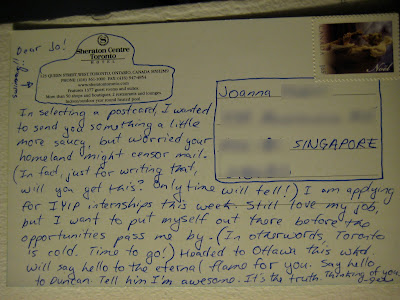 Dear Jo!
Sheraton Centre
Toronto
HOTEL
123 QUEEN STREET WEST TORONTO, ONTARIO, CANADA M5H2M9
PHONE (416) 361-1000 FAX (416) 947-4854
www.sheratontoronto.com
Features 1377 guest rooms and suites
More than 50 shops and boutiques, 2 restaurants and lounges
Indoor/outdoor year round heated pool
Noël
Joanna
SINGAPORE
In selecting a postcard, I wanted
to send you something a little
more saucy, but worried your
homeland might censor mail.
(In fact, just for writing that,
will you get this? Only time will tell!) I am applying
for IYIP internships this week. Still love my job,
but I want to put myself out there before the
opportunities pass me by. (In otherwords, Toronto
is cold. Time to go!) Headed to Ottawa this wknd.
will say hello to the eternal flame for you. Say hello
to Duncan. Tell him I'm awesome. It's the truth. Thinking of you,